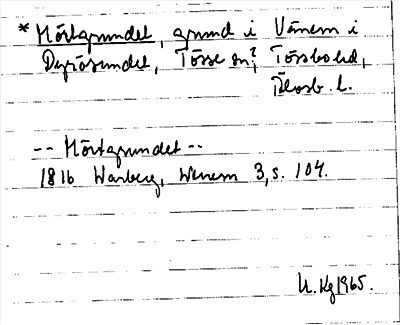 * Mörtgrundet, grund i Vänern i
Dyrösundet, Tösse sn?, Tössbo hd,
Älvsb. l.
-- Mörtgrundet --
1816 Warberg, Wenern 3, s. 104.
Kg 1965.